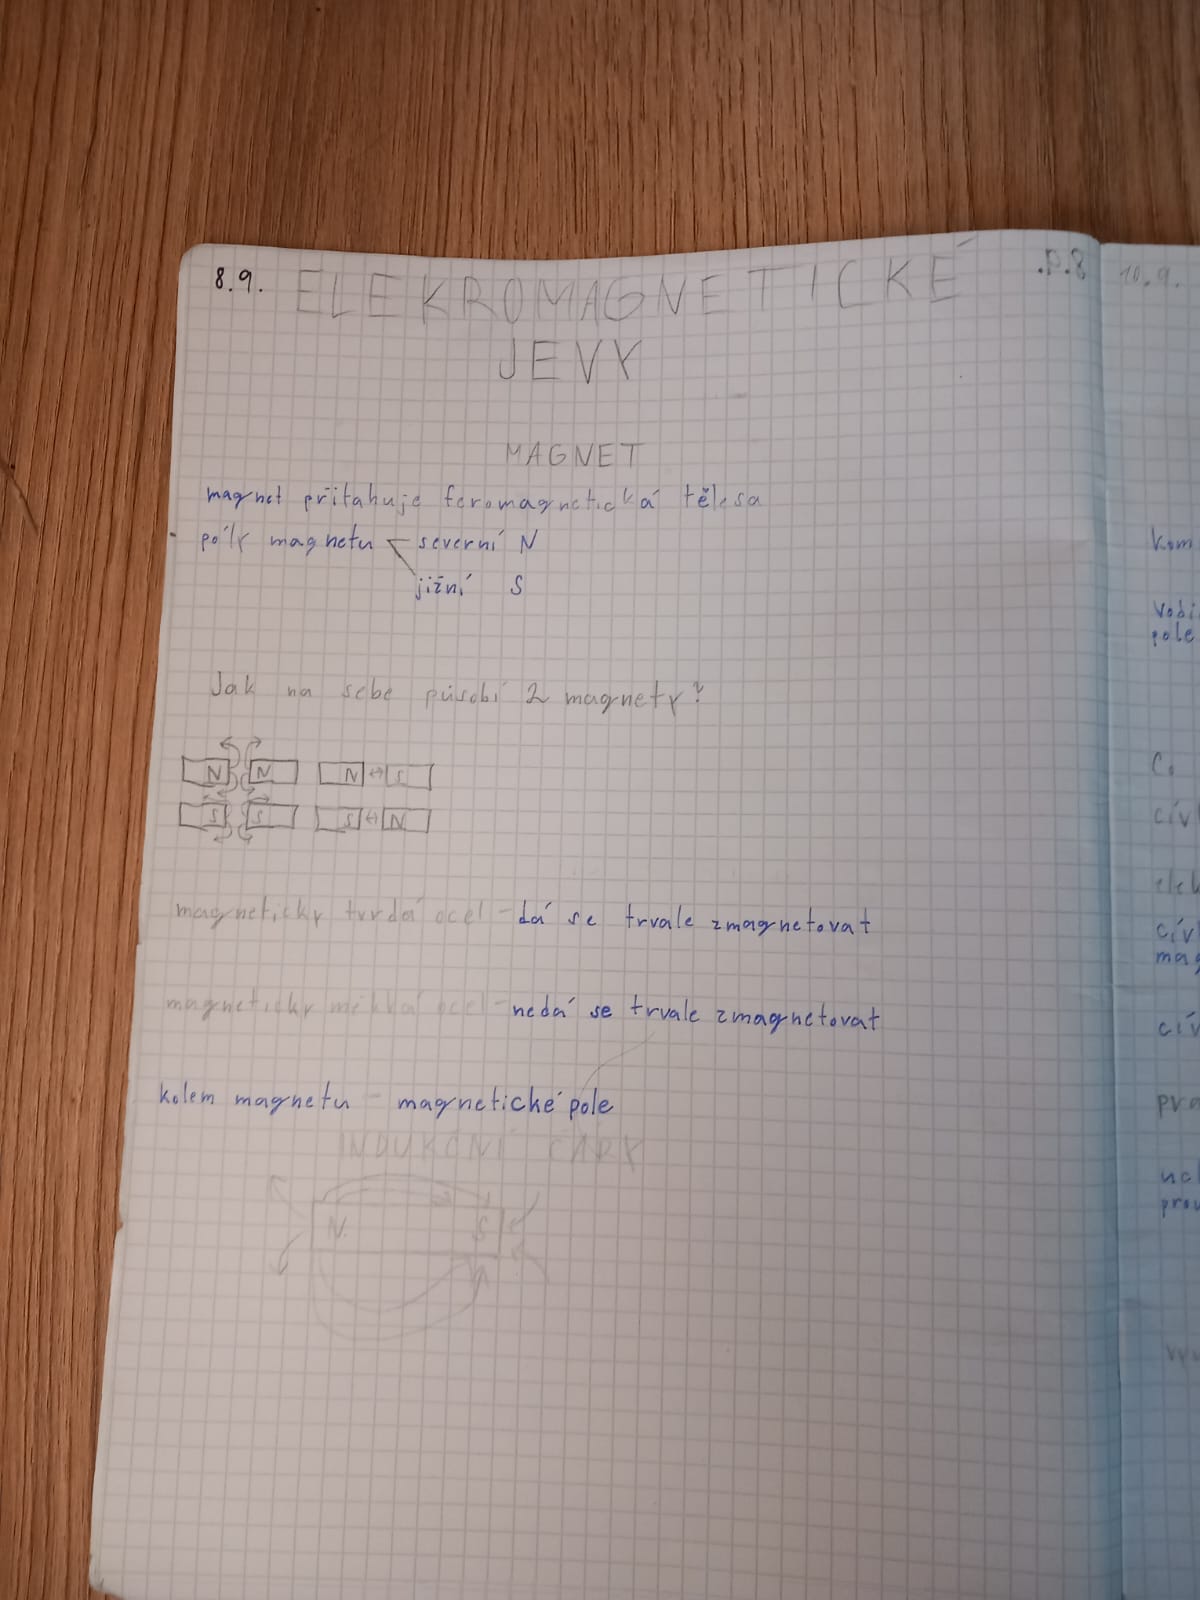 8.9. ELEKROMAGNETICKÉ
JEVY
MAGNET
magnet přitahuje feromagnetická tělesa
póly magnetu severní N
jižní S
Jak na sebe působí 2 magnety?
N N N S
S S S N
magneticky tvrdá ocel - dá se trvale zmagnetovat
magneticky měkká ocel - nedá se trvale zmagnetovat
kolem magnetu - magnetické pole
INDUKČNÍ ČÁRY
N S
10.9.
kom
vodi
pole
cív
elek
cív
mag
cív